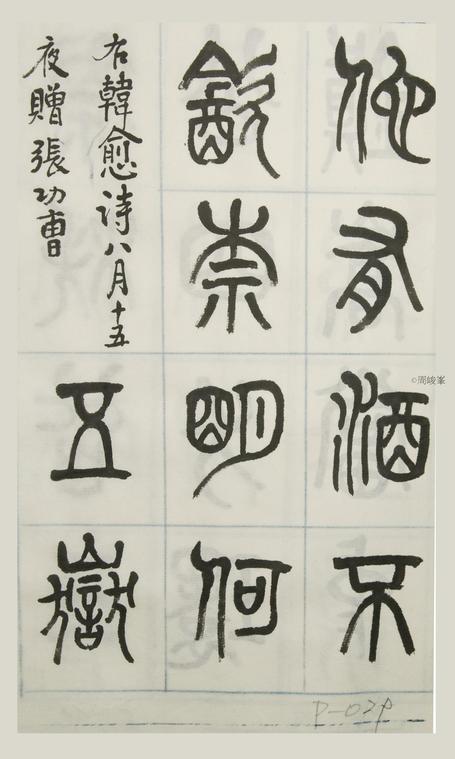 他有酒不
飲奈明何
右韓愈詩八月十五
夜贈張功曹
五嶽
©周峻峯